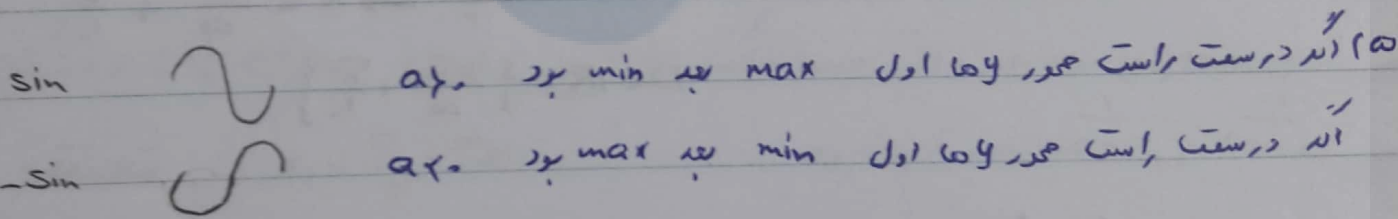 ۵) اگر در سمت راست محور yها اول max بعد min بود a>۰ sin
اگر در سمت راست محور yها اول min بعد max بود a<۰ -sin